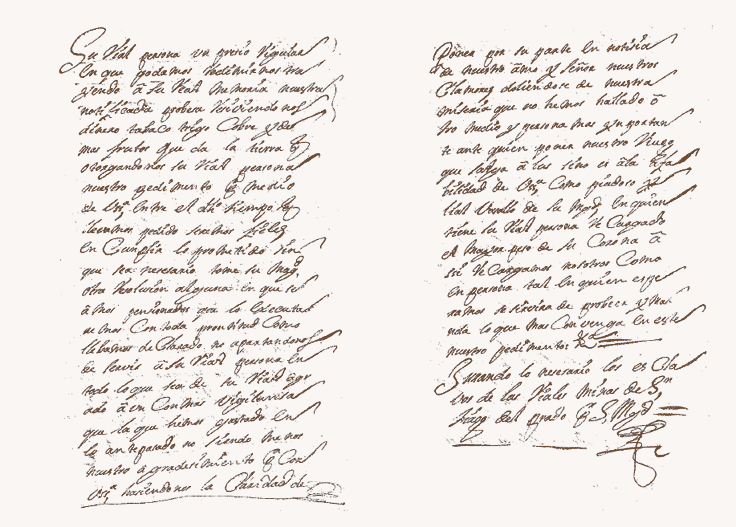 Su Rial persona un precio Rigular
en que podamos redimirnos tra
yendo à su Rial memoria nuestra
notisicada pobresa recibiendonos
dinero tabaco trigo Cobre y de
mas frutos que da la tierra y
otorgandonos su Rial persona
nuestro pedimento q̃ medio
de entre el dho tiempo
llevamos pedido seremos fieles
en Cumplir lo prometido sin
que sea nesesario tome su Magd
otra Resolusion alguna en que se
à mos pensionados que lo Executad
remos Con toda promtitud Como
llebamos de Clarado no apartandonos
de servir à su Rial persona en
todo lo que sea de su Rial agr
ado à en Con mas vigilansia
que la que hemos gastado en
lo antepasado no siendo menos
nuestro agradesimiento q̃ Con
hasiendonos la Charidad de
poner por su parte en notisia
de nuestro amo y Señor nuestros
Clamores doliendose de nuestra
miseria que no hemos hallado o
tro medio y persona mas ymportan
te ante quien poner nuestro Ruego
que salga à lus sino es à la
bilidad de Como piadoso
lial Vasallo de su Magd en quien
tiene su Rial persona Re Cargado
el Mayor peso de su Corona à
si Re Cargamos nosotros Como
en persona tal en quien espe
ramos se sirvira de probeer y man
nda lo que mas Convenga en este
nuestro pedimento
Jurando lo nesesario los es Cla
vos de las Riales minas de Sn
tiago del prado q̃ S. Magd